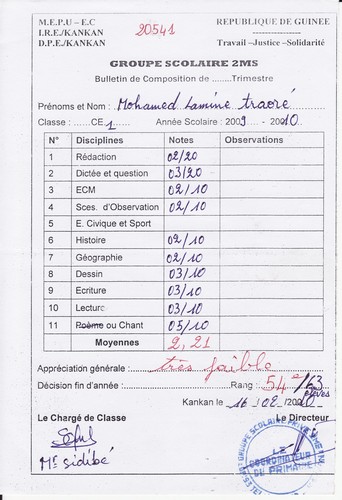 M.E.P.U – E.C 20541 REPUBLIQUE DE GUINEE
I.R.E./KANKAN
D.P.E./KANKAN Travail –Justice –Solidarité
GROUPE SCOLAIRE 2MS
Bulletin de Composition de ........Trimestre
Prénoms et Nom : Mohamed Lamine traoré
Classe : ......CE1 Année Scolaire : 2009..... - 20010
N° Disciplines Notes Observations
1 Rédaction 02/20
2 Dictée et question 03/20
3 ECM 02/10
4 Sces. d'Observation 02/10
5 E. Civique et Sport
6 Histoire 02/10
7 Géographie 02/10
8 Dessin 03/10
9 Ecriture 03/10
10 Lecture 03/10
11 Poème ou Chant 05/10
Moyennes 2,21
Appréciation générale : très faible
Décision fin d'année : Rang : 54e/63 élèves
Kankan le 16/02/2010
Le Chargé de Classe Le Directeur
Mr Sidibé
LE COORDINATEUR DU PRIMAIRE